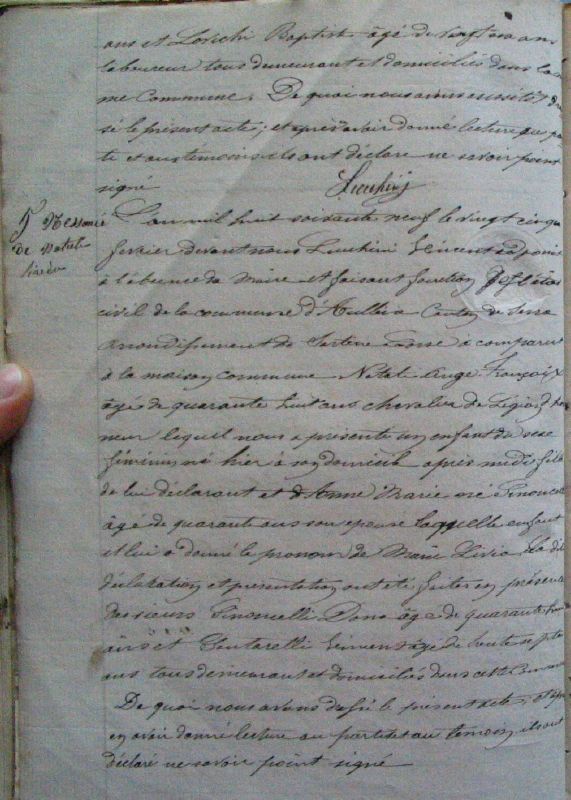 ans et Baptiste âgé de vingt ans
laboureur tous demeurant et domiciliés dans la
me Commune. De quoi nous avons
sé le présent acte, et après avoir donné lecture
te et aux temoins ils ont déclaré ne savoir point
signé
Lucchini
5 
de Natali
L'an mil huit soixante neuf le vingt cinq
fevrier devant nous Lucchini Vincent adjoint
à l'absence du Maire et faisant fonction de l'état
civil de la commune d'Aullène Canton de Serra
arrondissement de Sartène Corse à comparu
à la maison commune Natali Ange François
âgé de quarante huit ans chevalier de Légion d'hon
neur lequel nous a présenté un enfant du sexe
féminin né hier à son domicile après midi fille
de lui déclarant et d'Anne Marie né
âgée de quarante ans son epouse laquelle enfant
et lui a donné le pronom de Marie Livia la dit
déclaration et présentation ont été faites en présence
des sieurs Dono âgé de quarante
ans et Vincent âgé de trente sept
ans tous demeurant et domiciliés dans cette
De quoi nous avons dressé le présent acte, et après
en avoir donné lecture au parti et au temoins ils ont
déclaré ne savoir point signé